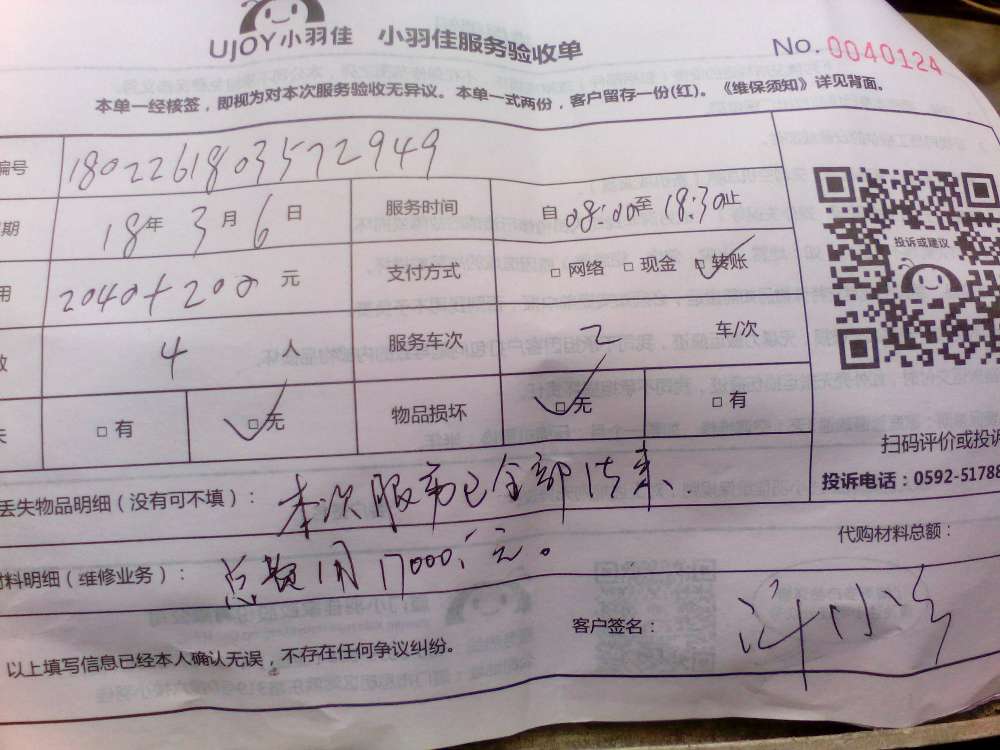 UJOY小羽佳 小羽佳服务验收单
No. 0040124
本单一经核签，即视为对本次服务验收无异议。本单一式两份，客户留存一份(红)。《维保须知》详见背面。
编号 1802261803572949
期 18年 3月 6日 服务时间 自08:00至18:30止
用 2040+200元 支付方式 □网络 □现金 □转账
数 4人 服务车次 2 车/次
失 □有 □无 物品损坏 □无 □有
投诉或建议
扫码评价或投诉
投诉电话：0592-51788
丢失物品明细（没有可不填）： 本次服务已全部结束
代购材料总额：
材料明细（维修业务）： 总费用 元。
客户签名：
以上填写信息已经本人确认无误，不存在任何争议纠纷。